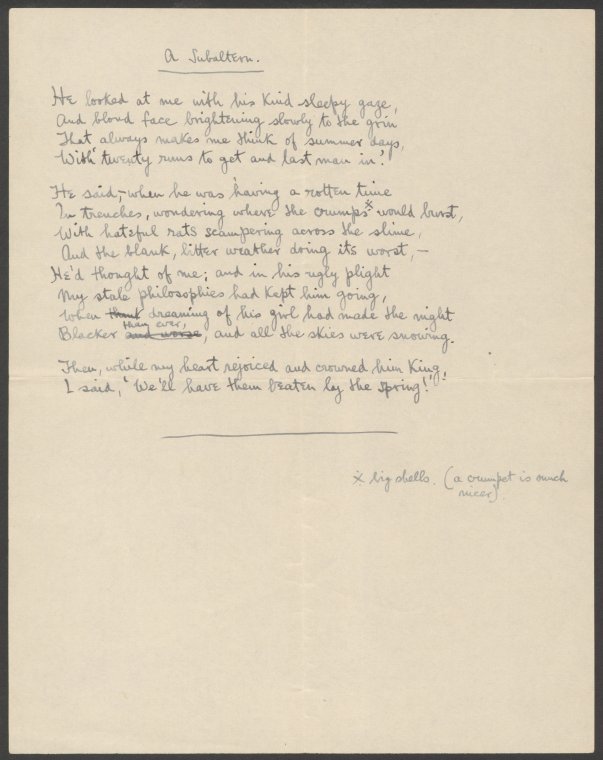 A Subaltern.
He looked at me with his kind sleepy gaze,
And blond face brightening slowly to the grin
That always makes me think of summer days,
With 'twenty runs to get and last man in'.
He said,– when he was having a rotten time
In trenches, wondering where the crumps x would burst,
With hateful rats scampering across the slime,
And the blank, bitter weather doing its worst,—
He'd thought of me; and in his ugly plight
My stale philosophies had kept him going,
When thank dreaming of his girl had made the night
than ever,
Blacker and worse, and all the skies were snowing.
Then, while my heart rejoiced and crowned him King,
I said, 'We'll have them beaten by the spring!'
x big shells. (a crumpet is much
nicer).